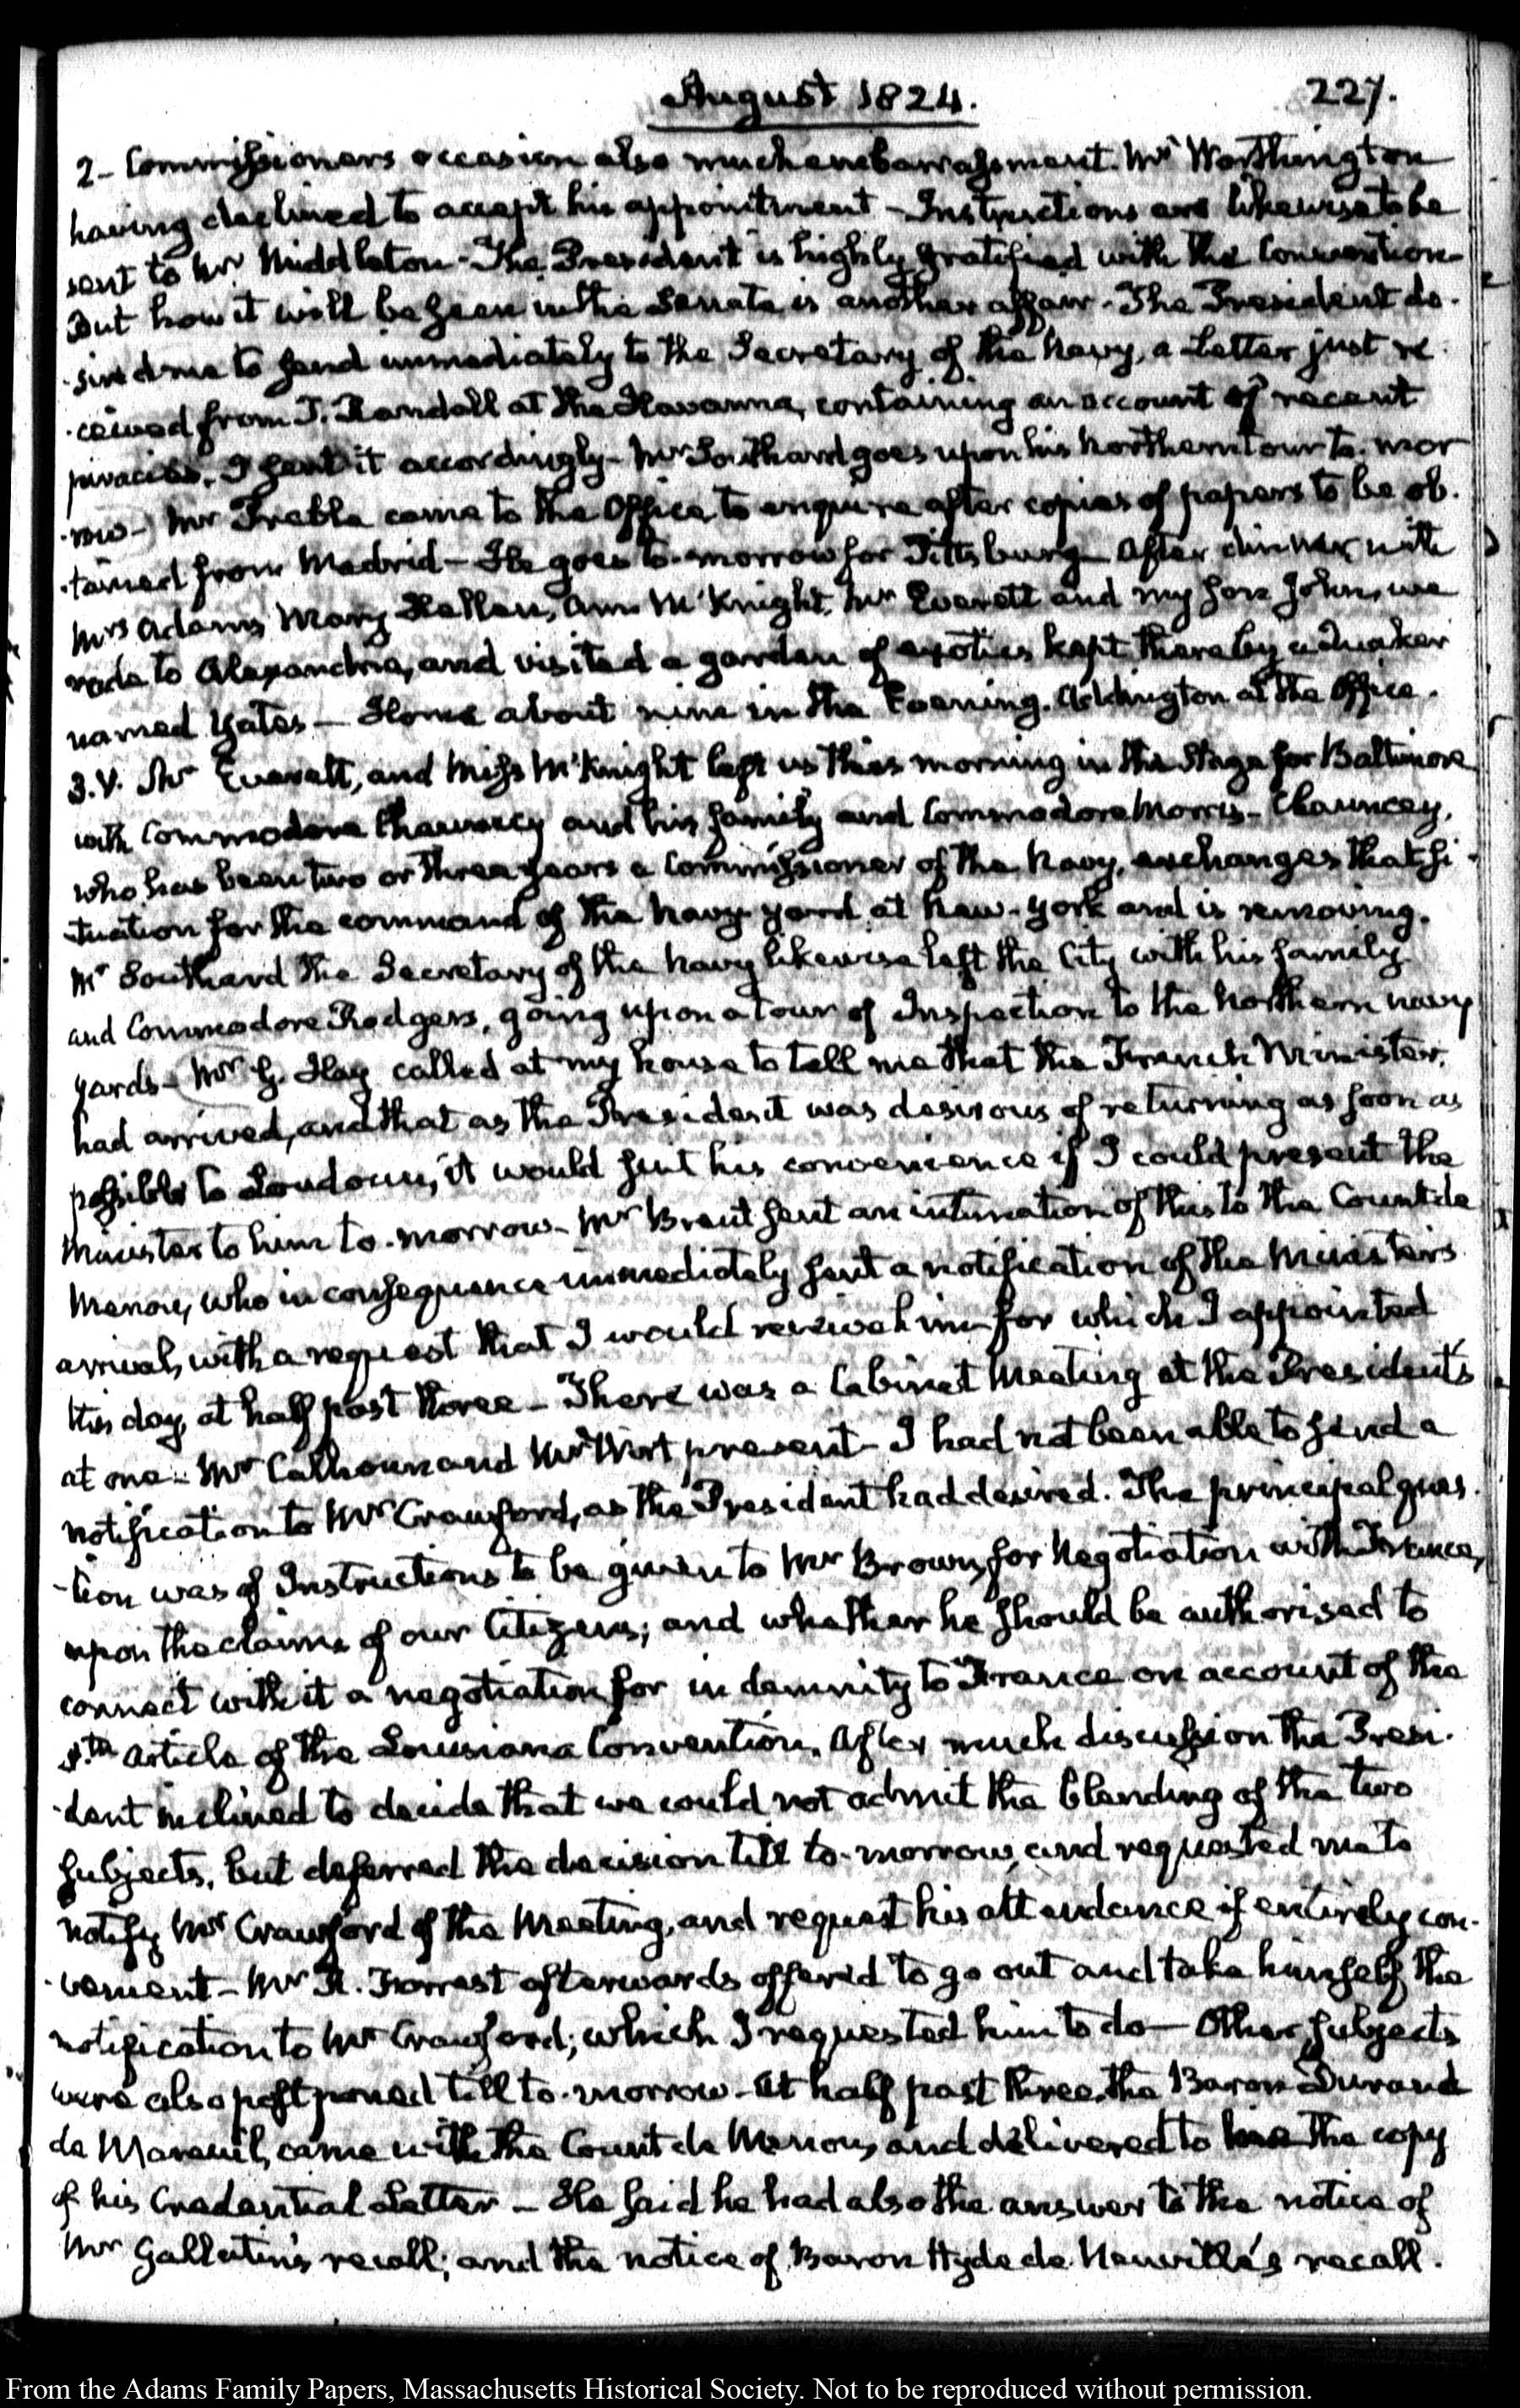 August 1824.
227.
2- Commissioners occasion also much embarrassment. Mr Worthington
having declined to accept his appointment - Instructions are likewise to be
sent to Mr Middleton - The President is highly gratified with the Convention -
But how it will be seen in the Senate, is another affair - The President de-
-sired me to send immediately to the Secretary of the Navy, a Letter just re-
-ceived from T. Randall at the Havanna, containing an account of recent
piracies. I sent it accordingly - Mr Southard goes upon his Northern tour to-mor
-row - Mr Preble came to the Office, to enquire after copies of papers to be ob-
-tained from Madrid - He goes to-morrow for Pittsburg - After dinner, with
Mrs Adams, Mary Hellen, Ann McKnight, Mr Everett and my Son John, we
rode to Alexandria, and visited a garden of exotics kept there by a Quaker
named Yates - Home about nine in the Evening. Addington at the Office.
3. V. Mr Everett, and Miss McKnight left us this morning in the Stage for Baltimore
with Commodore Chauncey and his family and Commodore Morris - Chauncey,
who has been two or three years a Commissioner of the Navy, exchanges that si-
tuation for the command of the Navy-yard at New-York and is removing.
Mr Southard the Secretary of the Navy likewise left the City with his family
and Commodore Rodgers, going upon a tour of Inspection to the Northern navy
yards - Mr G. Hay called at my house to tell me that the French Minister,
had arrived, and that as the President was desirous of returning as soon as
possible to Loudoun, it would suit his convenience if I could present the
Minister to him to-morrow - Mr Brent sent an intimation of this to the Count de
Menou, who in consequence immediately sent a notification of the Minister's
arrival, with a request that I would receive him for which I appointed
this day, at half past three - There was a Cabinet Meeting at the President's
at one - Mr Calhoun and Mr Wirt present - I had not been able to send a
notification to Mr Crawford, as the President had desired. The principal ques-
-tion was of Instructions to be given to Mr Brown, for Negotiation with France,
upon the claims of our Citizens; and whether he should be authorised to
connect with it a negotiation for indemnity to France on account of the
8th article of the Louisiana Convention. After much discussion the Presi-
-dent inclined to decide that we could not admit the blending of the two
subjects, but deferred the decision till to-morrow, and requested me to
notify Mr Crawford of the Meeting, and request his attendance if entirely con-
-venient - Mr R. Forrest afterwards offered to go out and take himself the
notification to Mr Crawford; which I requested him to do - Other subjects
were also postponed till to-morrow - At half past three, the Baron Durand
de Mareuil, came with the Count de Menou, and delivered to me the copy
of his Credential Letter - He said he had also the answer to the notice of
Mr Gallatin's recall; and the notice of Baron Hyde de Neuville's recall.
From the Adams Family Papers, Massachusetts Historical Society. Not to be reproduced without permission.